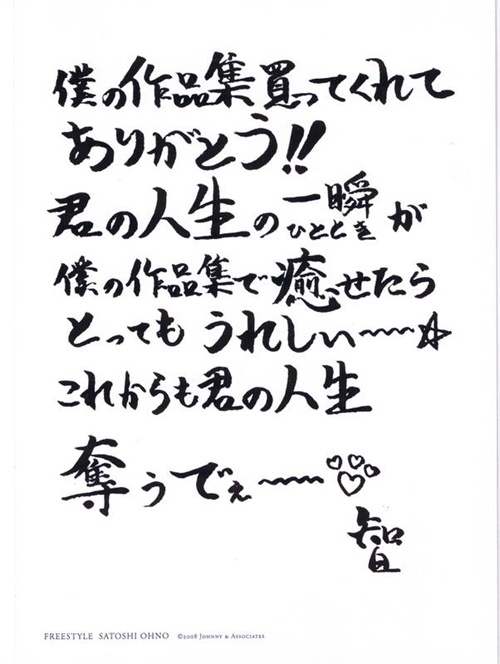 僕の作品集買ってくれて
ありがとう!!
君の人生の一瞬が
ひととき
僕の作品集で癒せたら
とっても うれしい〜〜☆
これからも君の人生
奪うでぇ〜〜♡♡♡♡
智
FREESTYLE SATOSHI OHNO ©2008 JOHNNY & ASSOCIATES